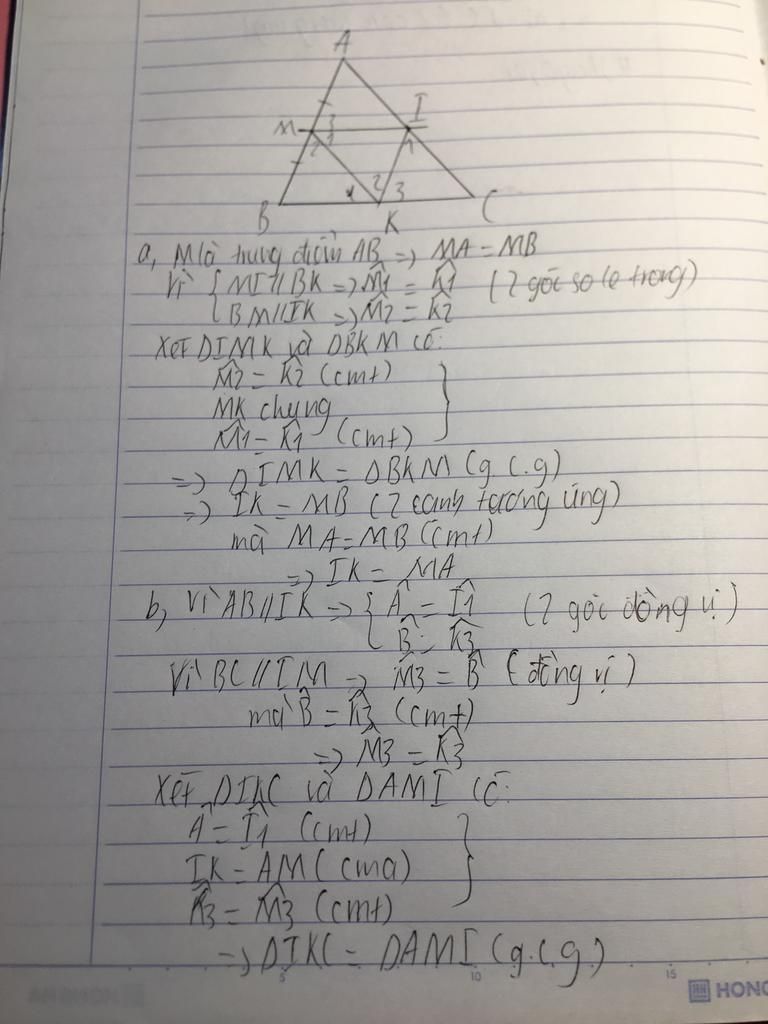 A
M 3 I
2 1 1
B 1 2 3 C
K
a, M là trung điểm AB => MA = MB
Vì { MI // BK => M̂1 = K̂1 (2 góc so le trong)
BM // IK => M̂2 = K̂2
Xét ΔIMK và ΔBKM có:
M̂2 = K̂2 (cmt)
MK chung
M̂1 = K̂1 (cmt) }
=> ΔIMK = ΔBKM (g.c.g)
=> IK = MB (2 cạnh tương ứng)
mà MA = MB (cmt)
=> IK = MA
b, Vì AB // IK => { Â = Î1 (2 góc đồng vị)
B̂ = K̂3
Vì BC // IM => M̂3 = B̂ (đồng vị)
mà B̂ = K̂3 (cmt)
=> M̂3 = K̂3
Xét ΔIKC và ΔAMI có:
Â = Î1 (cmt)
IK = AM (cma)
K̂3 = M̂3 (cmt) }
=> ΔIKC = ΔAMI (g.c.g)
5 10 15
HONG